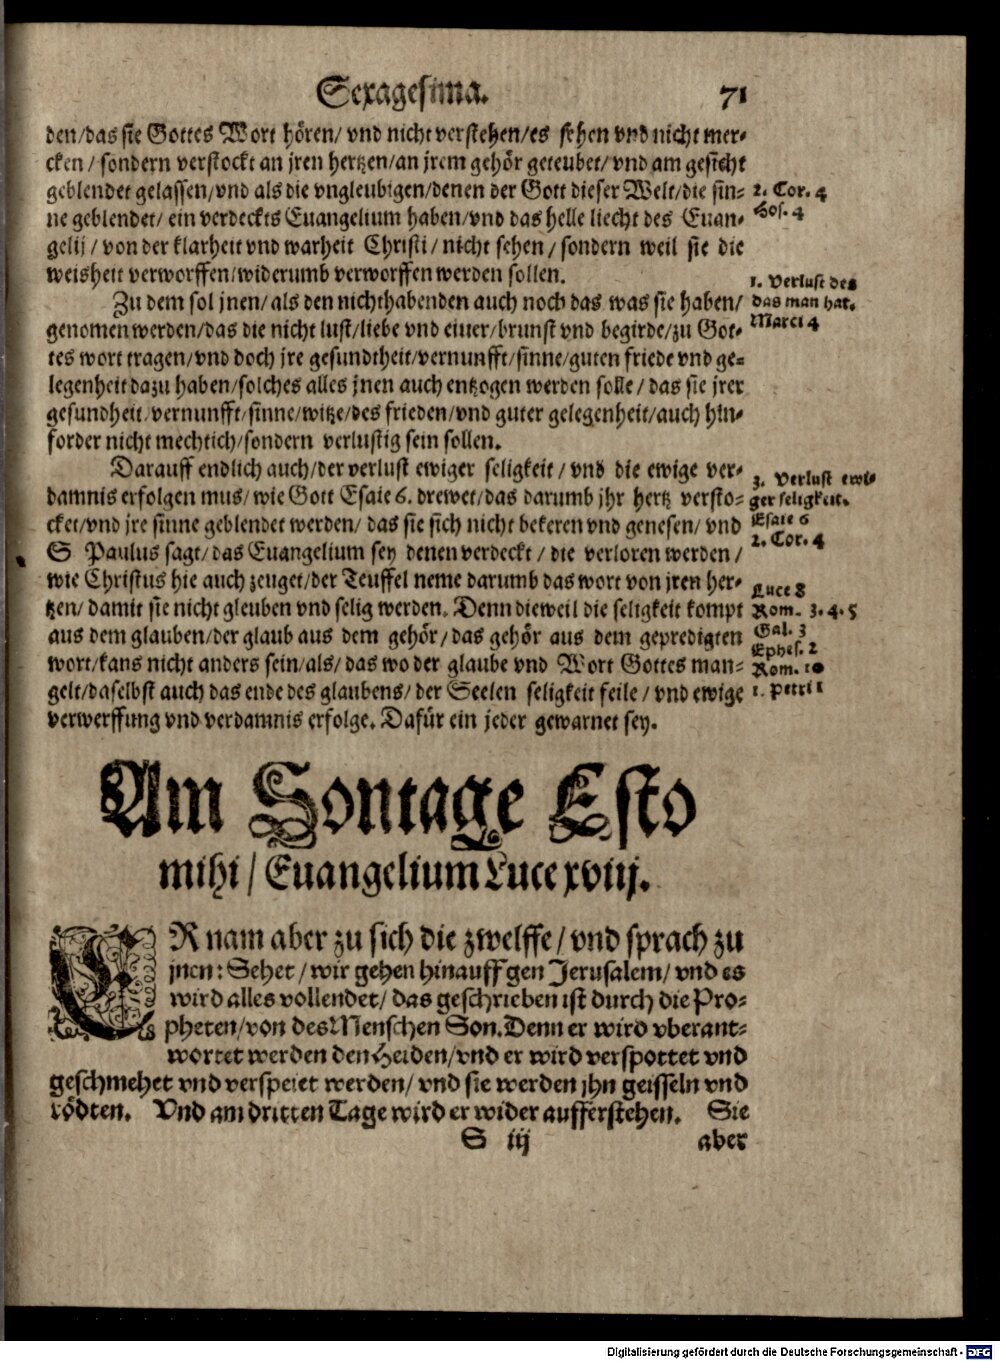 Sexagesima. 71
den/das sie Gottes Wort hören/ vnd nicht verstehen/es sehen vnd nicht mer-
cken/ sondern verstockt an jren hertzen/an jrem gehör geteubet/ vnd am gesicht
geblendet gelassen/vnd als die vngleubigen/denen der Gott dieser Welt/die sin-
ne geblendet/ ein verdeckts Euangelium haben/vnd das helle liecht des Euan-
gelij/ von der klarheit vnd warheit Christi/ nicht sehen/ sondern weil sie die
weisheit verworffen/widerumb verworffen werden sollen.
2. Cor. 4
Hos. 4
Zu dem sol jnen/ als den nichthabenden auch noch das was sie haben/
genomen werden/das die nicht lust/liebe vnd eiuer/brunst vnd begirde/zu Got-
tes wort tragen/vnd doch jre gesundtheit/vernunfft/sinne/guten friede vnd ge-
legenheit dazu haben/solches alles jnen auch entzogen werden solle/ das sie jrer
gesundheit/vernunfft/sinne/witze/des frieden/vnd guter gelegenheit/auch hin-
forder nicht mechtich/sondern verlustig sein sollen.
1. Verlust des
das man hat.
Marci 4
Darauff endlich auch/der verlust ewiger seligkeit/ vnd die ewige ver-
damnis erfolgen mus/ wie Gott Esaie 6. drewet/das darumb jhr hertz versto-
cket/vnd jre sinne geblendet werden/ das sie sich nicht bekeren vnd genesen/ vnd
S Paulus sagt/das Euangelium sey denen verdeckt/ die verloren werden/
wie Christus hie auch zeuget/der Teuffel neme darumb das wort von jren her-
tzen/ damit sie nicht gleuben vnd selig werden. Denn dieweil die seligkeit kompt
aus dem glauben/der glaub aus dem gehör/das gehör aus dem gepredigten
wort/kans nicht anders sein/als/das wo der glaube vnd Wort Gottes man-
gelt/daselbst auch das ende des glaubens/der Seelen seligkeit feile/ vnd ewige
verwerffung vnd verdamnis erfolge. Dafür ein jeder gewarnet sey.
3. Verlust ewi-
ger seligkeit.
Esaie 6
2. Cor. 4
Luce 8
Rom. 3. 4. 5
Gal. 3
Ephes. 2
Rom. 10
1. Petri 1
Am Sontage Esto
mihi/ Euangelium Luce xviij.
ER nam aber zu sich die zwelffe/ vnd sprach zu
jnen: Sehet/ wir gehen hinauff gen Jerusalem/ vnd es
wird alles vollendet/ das geschrieben ist durch die Pro-
pheten/von des Menschen Son. Denn er wird vberant-
wortet werden den Heiden/vnd er wird verspottet vnd
geschmehet vnd verspeiet werden/ vnd sie werden jhn geisseln vnd
tödten. Vnd am dritten Tage wird er wider aufferstehen. Sie
S iij aber
Digitalisierung gefördert durch die Deutsche Forschungsgemeinschaft - DFG